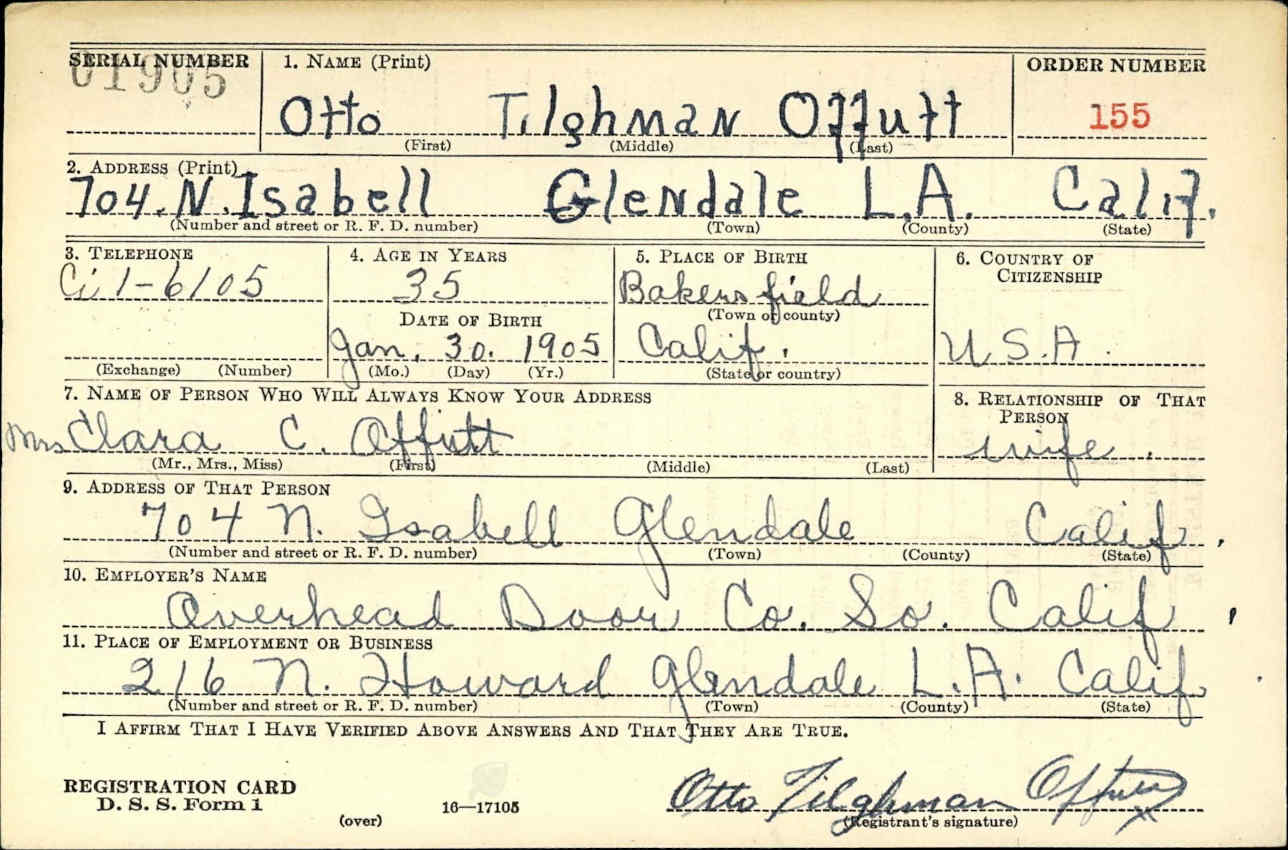 SERIAL NUMBER 1. NAME (Print) ORDER NUMBER
01905
Otto Tilghman Offutt 155
(First) (Middle) (Last)
2. ADDRESS (Print)
704. N. Isabell Glendale L.A. Calif.
(Number and street or R. F. D. number) (Town) (County) (State)
3. TELEPHONE 4. AGE IN YEARS 5. PLACE OF BIRTH 6. COUNTRY OF CITIZENSHIP
Ci 1-6105 35 Bakersfield
(Town or county)
DATE OF BIRTH
Jan. 30. 1905 Calif. U.S.A.
(Exchange) (Number) (Mo.) (Day) (Yr.) (State or country)
7. NAME OF PERSON WHO WILL ALWAYS KNOW YOUR ADDRESS 8. RELATIONSHIP OF THAT PERSON
Mrs Clara C. Offutt wife.
(Mr., Mrs., Miss) (First) (Middle) (Last)
9. ADDRESS OF THAT PERSON
704 N. Isabell Glendale Calif.
(Number and street or R. F. D. number) (Town) (County) (State)
10. EMPLOYER'S NAME
Overhead Door Co. So. Calif
11. PLACE OF EMPLOYMENT OR BUSINESS
216 N. Howard Glendale L.A. Calif
(Number and street or R. F. D. number) (Town) (County) (State)
I AFFIRM THAT I HAVE VERIFIED ABOVE ANSWERS AND THAT THEY ARE TRUE.
REGISTRATION CARD
D. S. S. Form 1 16—17105 Otto Tilghman Offutt
(over) (Registrant's signature)